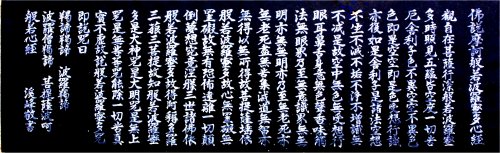 佛說摩訶般若波羅蜜多心經
觀自在菩薩行深般若波羅蜜
多時照見五蘊皆空度一切苦
厄舍利子色不異空空不異色
色即是空空即是色受想行識
亦復如是舍利子是諸法空相
不生不滅不垢不淨不增
不減是故空中無色無受想行識無
眼耳鼻舌身意無色聲香味觸
法無眼界乃至無意識界無無
明亦無無明盡乃至無老死亦
無老死盡無苦集滅道無智亦
無得以無所得故菩提薩埵依
般若波羅蜜多故心無罣礙無
罣礙故無有恐怖遠離一切顛
倒夢想究竟涅槃三世諸佛依
般若波羅蜜多故得阿耨多羅
三藐三菩提故知般若波羅蜜
多是大神咒是大明咒是無上
咒是無等等咒能除一切苦真
實不虛故說般若波羅蜜多咒
即說咒曰
揭諦揭諦 波羅揭諦
波羅僧揭諦 菩提薩婆訶
般若心經 敬書